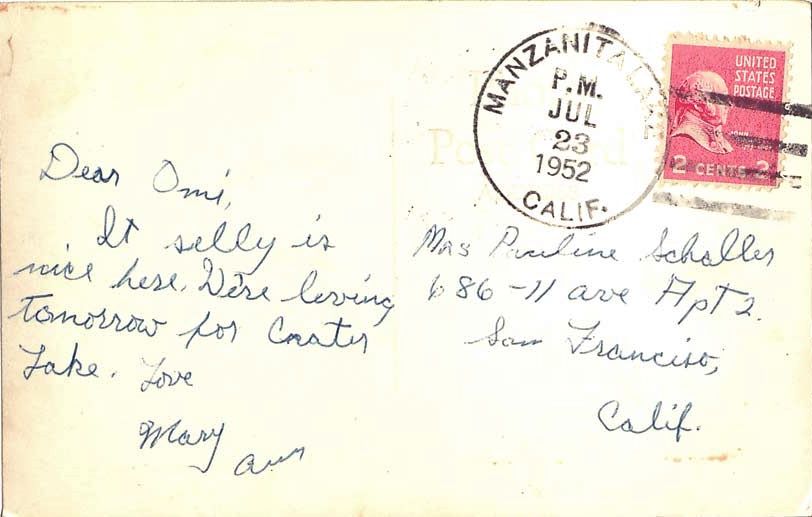 Dear Omi,
It selly is
nice here. We're leving
tomorrow for Crater
Lake. Love
Mary
Ann
MANZANITA LAKE
P.M.
JUL
23
1952
CALIF.
UNITED
STATES
POSTAGE
JOHN
2 CENTS 2
Mrs Pauline Schaller
686-11 ave Apt 2.
San Francisco,
Calif.